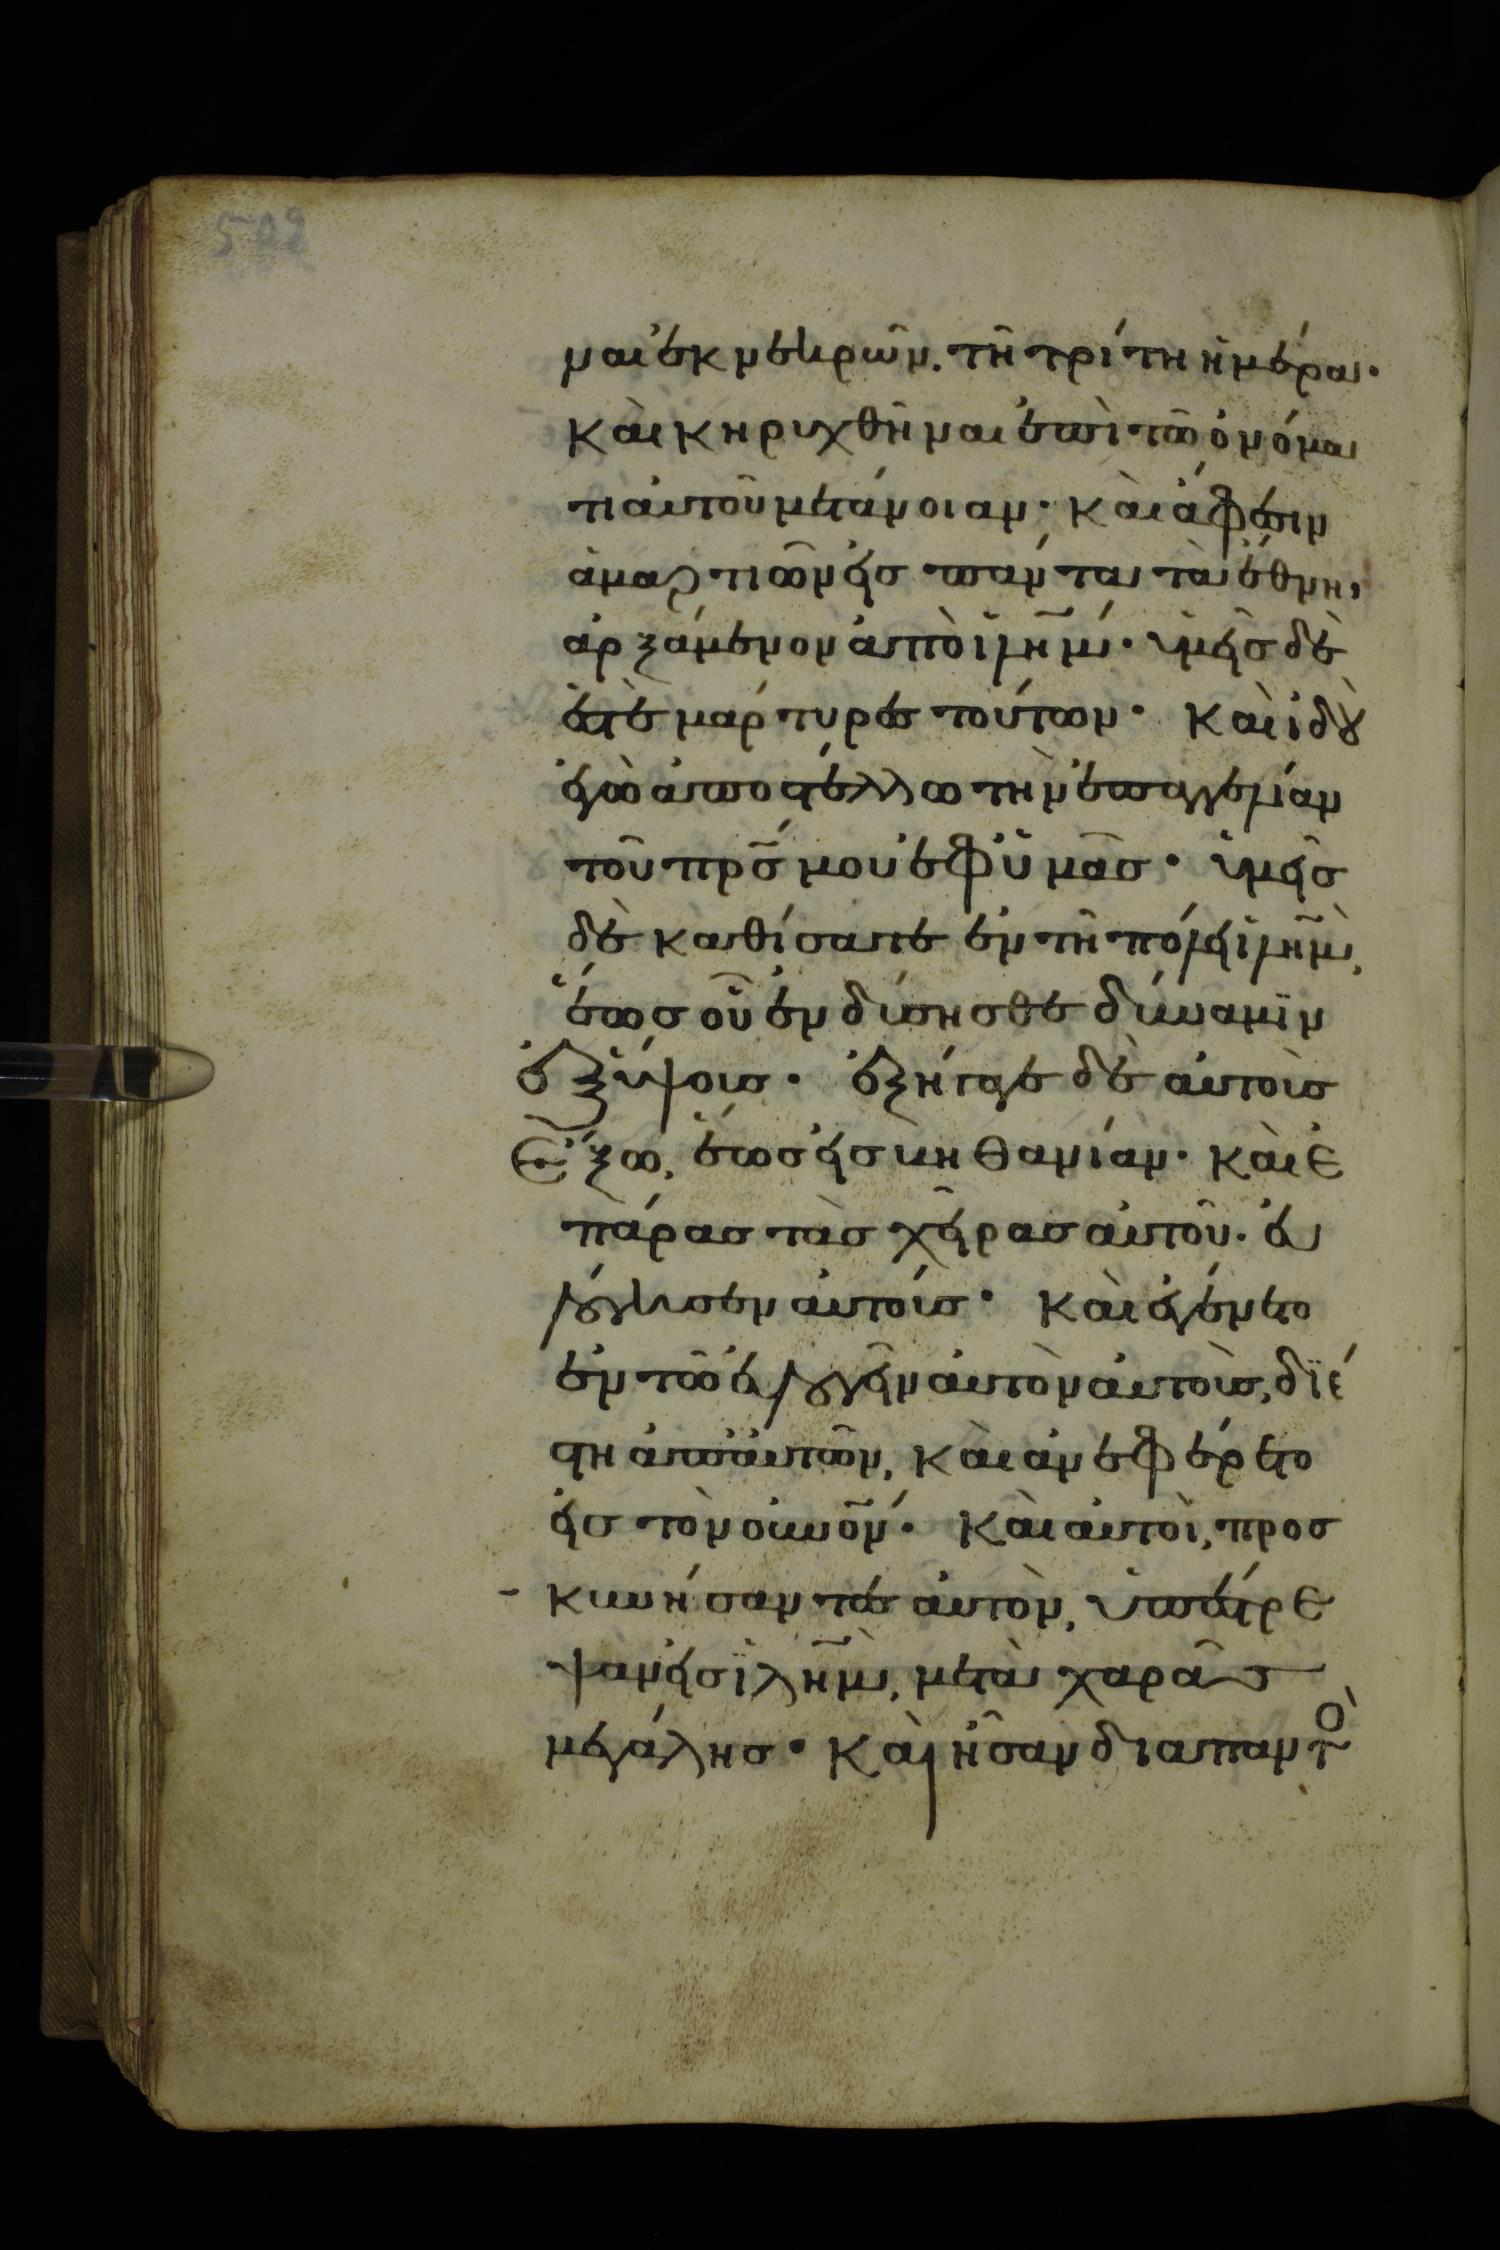 502
ναι ἐκ νεκρῶν. τῆ τρίτη ἡμέρα·
Καὶ κηρυχθῆναι ἐπὶ τῶ ὀνόμα
τι αὐτοῦ μετάνοιαν· Καὶ ἄφεσιν
ἁμαρτιῶν εἰς πάντα τὰ ἔθνη,
ἀρξάμενον ἀπὸ ἰλῆμ· ὑμεῖς δὲ
ἐστὲ μάρτυρες τούτων· Καὶ ἰδοὺ
ἐγὼ ἀποστέλλω τὴν ἐπαγγελίαν
τοῦ πρσ μου ἐφ ὑμᾶς· ὑμεῖς
δὲ καθίσατε ἐν τῆ πόλει ἰλῆμ,
ἕως οὗ ἐνδύσησθε δύναμιν
ἐξ ὕψους· ἐξήγαγε δὲ αὐτοὺς
Ἔξω, ἕως εἰς βηθανίαν· Καὶ ἐ
πάρας τὰς χεῖρας αὐτοῦ· εὐ
λόγησεν αὐτούς· Καὶ ἐγένετο
ἐν τῶ εὐλογεῖν αὐτὸν αὐτοὺς, διέ
στη ἀπ αὐτῶν, Καὶ ἀνεφέρετο
εἰς τὸν οὐνον· Καὶ αὐτοὶ, προσ
κυνήσαντες αὐτὸν, ὑπέστρε
ψαν εἰς ἰλῆμ, μετὰ χαρᾶς
μεγάλης· Καὶ ἦσαν διαπαντὸ